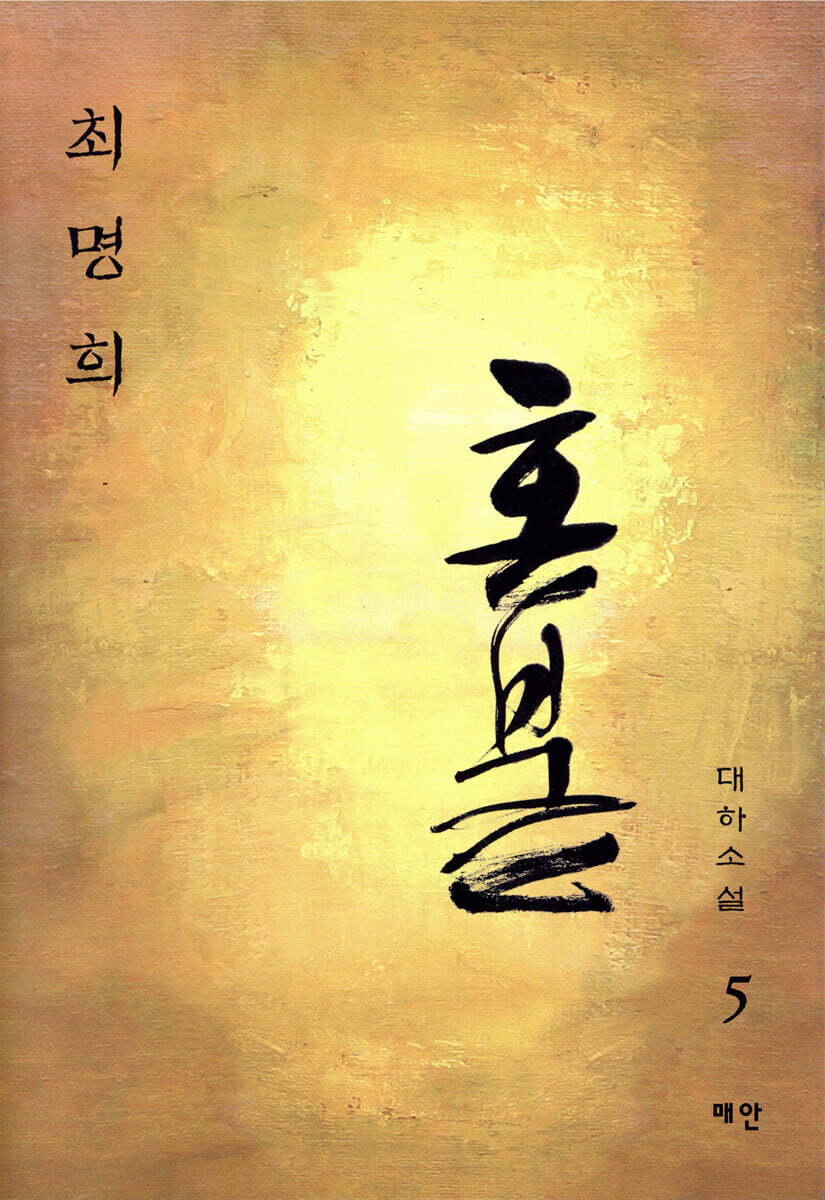 최명희
혼불
대하소설
5
매안